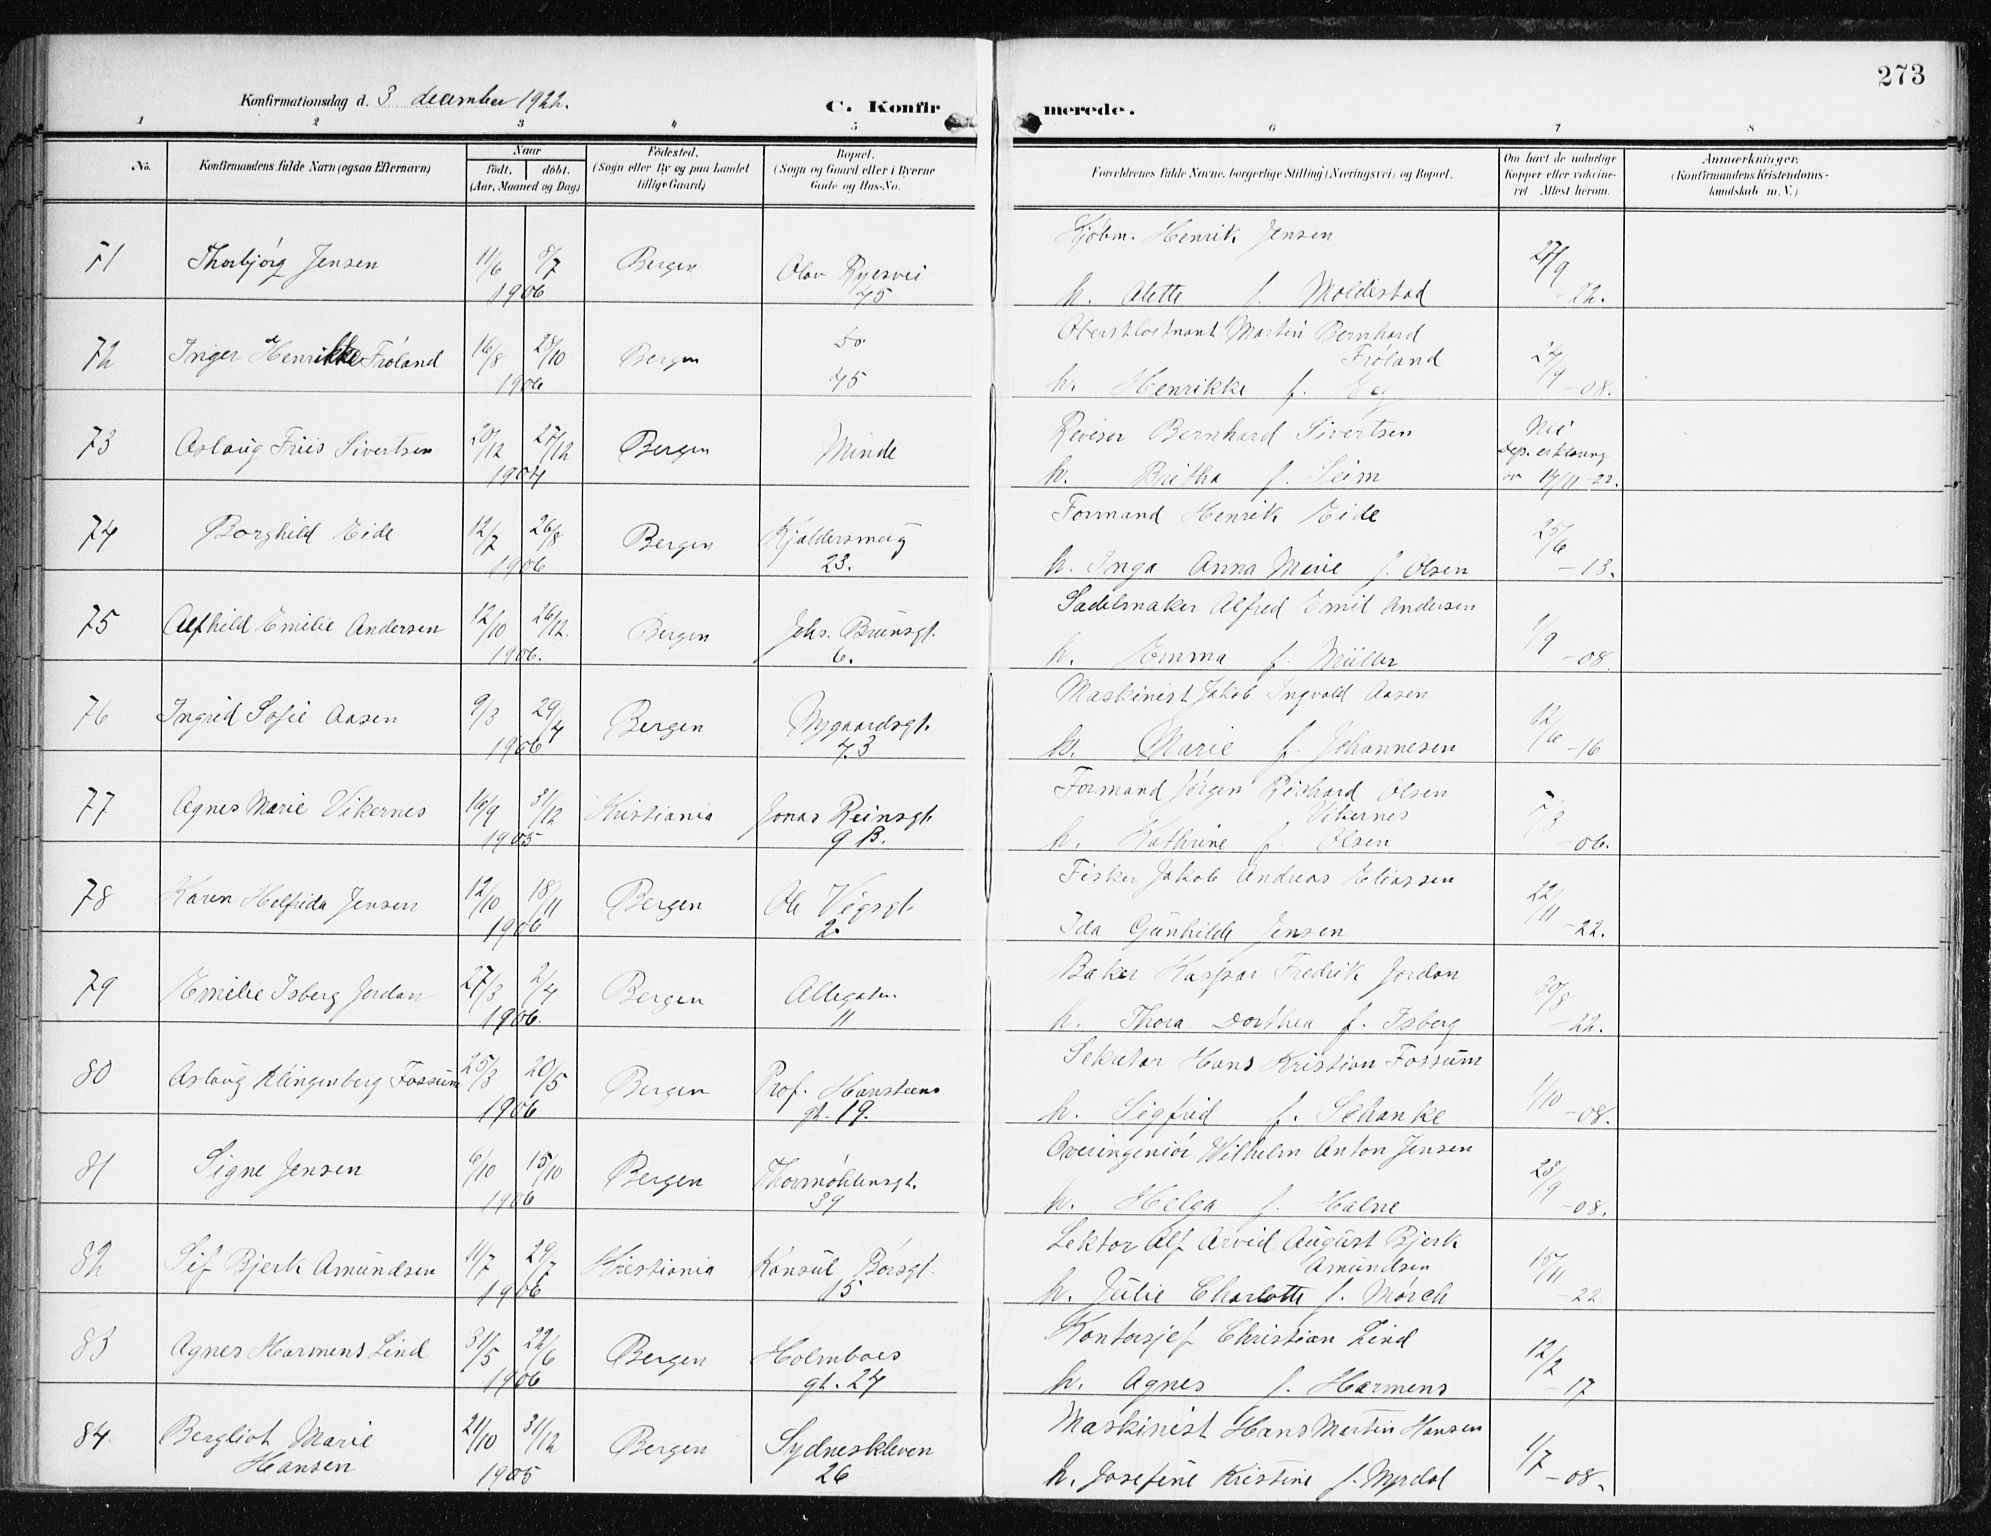 273
Konfirmationsdag d. 3 december 1922.
C. Konfirmerede.
1 2 3 4 5 6 7 8
No. Konfirmandens fulde Navn (ogsaa Efternavn) Naar født. døbt. (Aar, Maaned og Dag) Fødested. (Sogn eller By og paa Landet tillige Gaard) Bopæl. (Sogn og Gaard eller i Byerne Gade og Hus-No. Forældrenes fulde Navne, borgerlige Stilling (Næringsvei) og Bopæl. Om havt de naturlige Kopper eller vakcineret Attest herom. Anmærkninger. (Konfirmandens Kristendomskundskab m. V.)
71 Thorbjørg Jensen 11/6 8/7 1906 Bergen Olav Ryesvei 75 Kjøbm. Henrik Jensen
h. Alette f. Moldestad 27/9 -22.
72 Inger Henrikke Frøland 16/8 1906 Bergen do. 75 Oberstløitnant Martin Bernhard Frøland
h. Henrikke f. 24/9 -08.
73 Aslaug Friis Sivertsen 20/12 27/12 1904 Bergen Minde Revisor Bernhard Sivertsen
h. Britha f. Seim Nei Dep. erklæring av 17/11 -22.
74 Borghild Eide 12/7 26/8 1906 Bergen Kjaldersmug 23. Formand Henrik Eide
h. Inga Anna Marie f. Olsen 25/6 -13.
75 Alfhild Emilie Andersen 12/10 26/12. 1906. Bergen Johs. Bruunsgt. 6. Sadelmaker Alfred Emil Andersen
h. Emma f. Müller 1/9 -08.
76 Ingrid Sofie Aasen 9/3 29/4 1906 Bergen Nygaardsgt. 73 Maskinist Jakob Ingvald Aasen
h. Marie f. Johannesen 12/6 -16
77 Agnes Marie Vikernes 16/9 31/12 1905 Kristiania Jonas Reinsgt. 9 B. Formand Jørgen Richard Olsen Vikernes
h. Kathrine f. Olsen -06.
78 Karen Helfrida Jensen 12/10 18/11 1906 Bergen Ole Vigsgt. 2. Fisker Jakob Andreas Eliassen
Ida Gunhilde Jensen 22/11 -22.
79 Emilie Isberg Jordan 27/3 2/4 1906. Bergen Allegaten 11 Baker Kaspar Fredrik Jordan
h. Thora Dorthea f. Isberg 30/8 -22.
80 Aslaug Klingenberg Fossum 25/3 20/5 1906 Bergen Prof. Hansteens gt. 19. Sekretær Hans Kristian Fossum
h. Sigfrid f. Schanke 1/10 -08.
81 Signe Jensen 6/10 15/10 1906 Bergen Thormøhlensgt. 37 Overingeniør Wilhelm Anton Jensen
h. Helga f. Halne 23/9 -08.
82 Sif Bjerk Amundsen 11/7 29/7 1906 Kristiania Konsul Børsgt. 15 Lektor Alf Arvid August Bjerk Amundsen
h. Julie Charlotte f. Mørch 15/11 -22
83 Agnes Harmens Lind 31/5 22/6 1906 Bergen Holmboes gt. 24 Kontorsjef Christian Lind
h. Agnes f. Harmens 12/2 -17
84 Bergliot Marie Hansen 21/10 31/12 1905 Bergen Sydneskleven 26 Maskinist Hans Martin Hansen
h. Josefine Kristine f. Myrdal 1/7 -08.